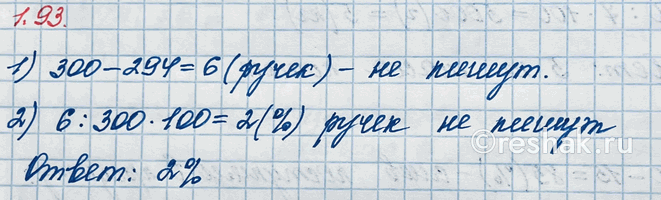 1.93.
1) 300-294=6 (ручек) - не пишут.
2) 6:300·100=2(%) ручек не пишут
Ответ: 2%
reshak.ru